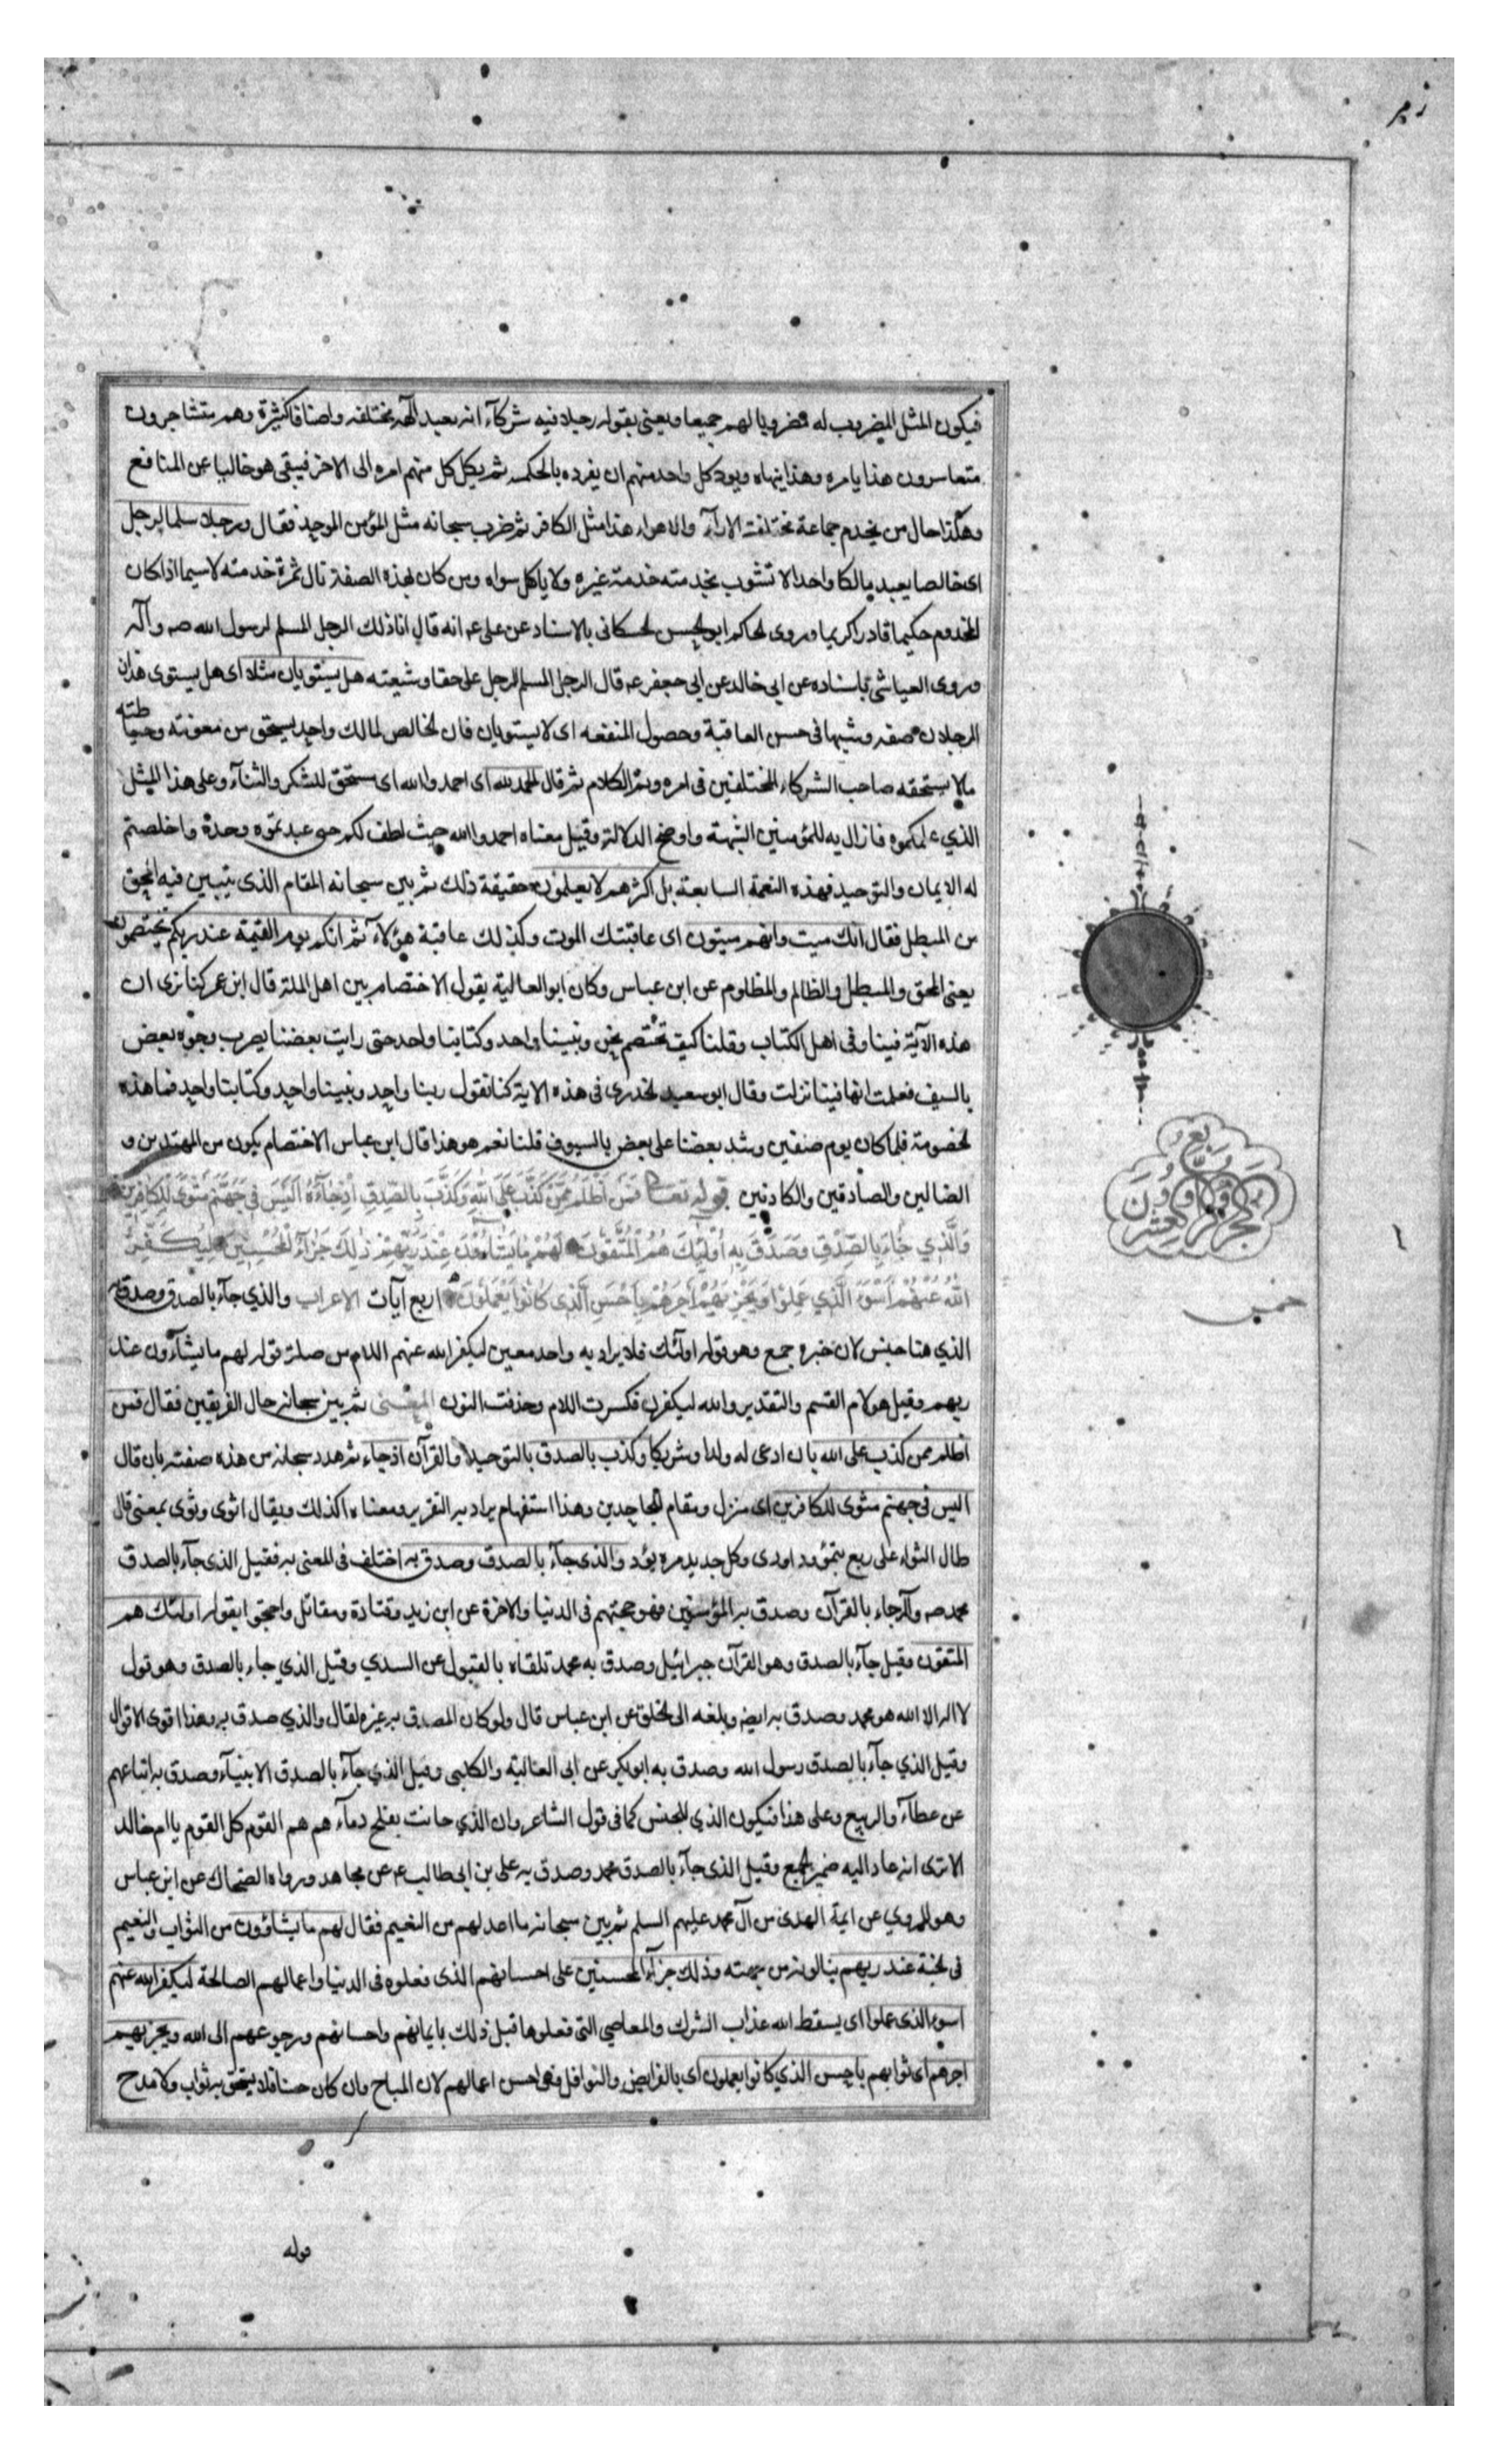 فيكون المثل المضروب له مضروبا لهم جميعا ويعنى بقوله رجلا فيه شركآء انه يعبد آلهة مختلفه واصنافا كثيرة وهم متشاجرون
متعاسرون هذا يامره وهذا ينهاه ويود كل واحد منهم ان يفرده بالحكمه ثم يكل كل منهم امره الى الاخر فيبقى هو خاليا عن المنافع
وهكذا حال من يخدم جماعة مختلفة الارآء والاهواء هذا مثل الكافر ثم ضرب سبحانه مثل المؤمن الموحد فقال ورجلا سلما لرجل
اى خالصا يعبد مالكا واحدا لا تشوب بخدمته خدمة غيره ولا ياكل سواه ومن كان بهذه الصفة نال ثمرة خدمته لا سيما اذا كان
المخدوم حكيما قادرا كريما وروى لحاكم ابو لحسن لحسكانى بالاسناد عن على عم انه قال انا ذلك الرجل المسلم لرسول الله صم وآله
وروى العياشى باسناده عن ابى خالد عن ابى جعفر عم قال الرجل المسلم للرجل على حقا وشيعته هل يستويان مثلا اى هل يستوى هذان
الرجلان صفه وشبها فى حسن العاقبة وحصول المنفعه اى لا يستويان فان لخالص لمالك واحد يستحق من معونته وحياطته
مالا يستحقه صاحب الشركاء المختلفين فى امره وتم الكلام ثم قال الحمد لله اى احمدوا الله اى مستحق للشكر والثنآء وعلى هذا المثل
الذي علمكموه فازال به للمؤمنين الشبهة واوضح الدلالة وقيل معناه احمدوا الله حيث لطف لكم حتى عبدتموه وحده واخلصتم
له الايمان والتوحيد فهذه النعمة السابغة بل اكثرهم لا يعلمون حقيقة ذلك ثم بين سبحانه المقام الذى يتبين فيه المحق
من المبطل فقال انك ميت وانهم ميتون اى عاقبتك الموت وكذلك عاقبة هؤلآء ثم انكم يوم القيمة عند ربكم تختصمون
يعنى المحق والمبطل والظالم والمظلوم عن ابن عباس وكان ابو العالية يقول الاختصام بين اهل الملة قال ابن عمر كنا نرى ان
هذه الآية فينا وفى اهل الكتاب وقلنا كيف نختصم نحن ونبينا واحد وكتابنا واحد حتى رايت بعضنا يضرب وجوه بعض
بالسيف فعلمت انها فينا نزلت وقال ابو سعيد لخدرى فى هذه الاية كنا نقول ربنا واحد ونبينا واحد وكتابنا واحد فما هذه
لخصومة فلما كان يوم صفين وشد بعضنا على بعض بالسيوف قلنا نعم هو هذا قال ابن عباس الاختصام يكون من المهتدين و
الضالين والصادقين والكاذبين قوله تعالى فَمَنْ أَظْلَمُ مِمَّنْ كَذَبَ عَلَى اللهِ وَكَذَّبَ بِالصِّدْقِ إِذْ جَآءَهُ أَلَيْسَ فِي جَهَنَّمَ مَثْوًى لِلْكَافِرِينَ
وَالَّذِي جَاءَ بِالصِّدْقِ وَصَدَّقَ بِهِ أُولَئِكَ هُمُ الْمُتَّقُونَ لَهُمْ مَا يَشَاءُونَ عِنْدَ رَبِّهِمْ ذَلِكَ جَزَآءُ الْمُحْسِنِينَ لِيُكَفِّرَ
اللهُ عَنْهُمْ أَسْوَءَ الَّذِي عَمِلُوا وَيَجْزِيَهُمْ أَجْرَهُمْ بِأَحْسَنِ الَّذِى كَانُوا يَعْمَلُونَ اربع آيات الاعراب والذي جآء بالصدق وصدق به
الذي هنا جنس لان خبره جمع وهو قوله اولئك فلا يراد به واحد معين ليكفر الله عنهم اللام من صلة قوله لهم ما يشآءون عند
ربهم وقيل هو لام القسم والتقدير والله ليكفرن فكسرت اللام وحذفت النون المعنى ثم بين سبحانه حال الفريقين فقال فمن
اظلم ممن كذب على الله بان ادعى له ولدا وشريكا وكذب بالصدق بالتوحيد والقرآن اذ جاء ثم هدد سبحانه من هذه صفته بان قال
اليس فى جهنم مثوى للكافرين اى منزل ومقام للجاحدين وهذا استفهام يراد به التقرير ومعناه اكذلك ويقال اثوى وثوى بمعنى قال
طال الثواء على ربع بتمؤد اودى وكل جديد مره يؤد والذى جآء بالصدق وصدق به اختلف فى المعنى به فقيل الذى جآء بالصدق
محمد صم وآله جاء بالقرآن وصدق به المؤمنين فهو حجتهم فى الدنيا والاخرة عن ابن زيد وقتادة ومقاتل واحتجوا بقوله اولئك هم
المتقون وقيل جآء بالصدق وهو القرآن جبرائيل وصدق به محمد تلقاه بالقبول عن السدي وقيل الذي جاء بالصدق وهو قول
لا اله الا الله هو محمد وصدق به ايضا وبلغه الى لخلق عن ابن عباس قال ولو كان المصدق به غيره لقال والذي صدق به وهذا اقوى الاقوال
وقيل الذي جآء بالصدق رسول الله وصدق به ابو بكر عن ابى العالية والكلبى وقيل الذي جآء بالصدق الانبيآء وصدق به اتباعهم
عن عطآء والربيع وعلى هذا فيكون الذي للجنس كما فى قول الشاعر وان الذي حانت بفلج دمآءهم هم القوم كل القوم يا ام خالد
الا ترى انه عاد اليه ضمير لجمع وقيل الذى جآء بالصدق محمد وصدق به على بن ابى طالب عم عن مجاهد ورواه الضحاك عن ابن عباس
وهو المروي عن ايمة الهدى من آل محمد عليهم السلم ثم بين سبحانه ما اعد لهم من النعيم فقال لهم ما يشاؤون من الثواب والنعيم
فى لجنة عند ربهم ينالونه من جهته وذلك جزآء المحسنين على احسانهم الذى فعلوه فى الدنيا واعمالهم الصالحة ليكفر الله عنهم
اسوء الذى عملوا اى يسقط الله عذاب الشرك والمعاصي التى فعلوها قبل ذلك بايمانهم واحسانهم ورجوعهم الى الله ويجزيهم
اجرهم اى ثوابهم باحسن الذي كانوا يعملون اى بالفرايض والنوافل فهى احسن اعمالهم لان المباح وان كان حسنا فلا يستحق به ثواب ولا مدح
قوله